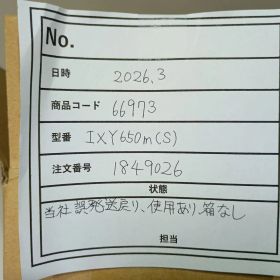 No.
日時 2026.3
商品コード 66973
型番 IXY650m(S)
注文番号 1849026
状態
当社誤発送戻り、使用あり箱なし
担当